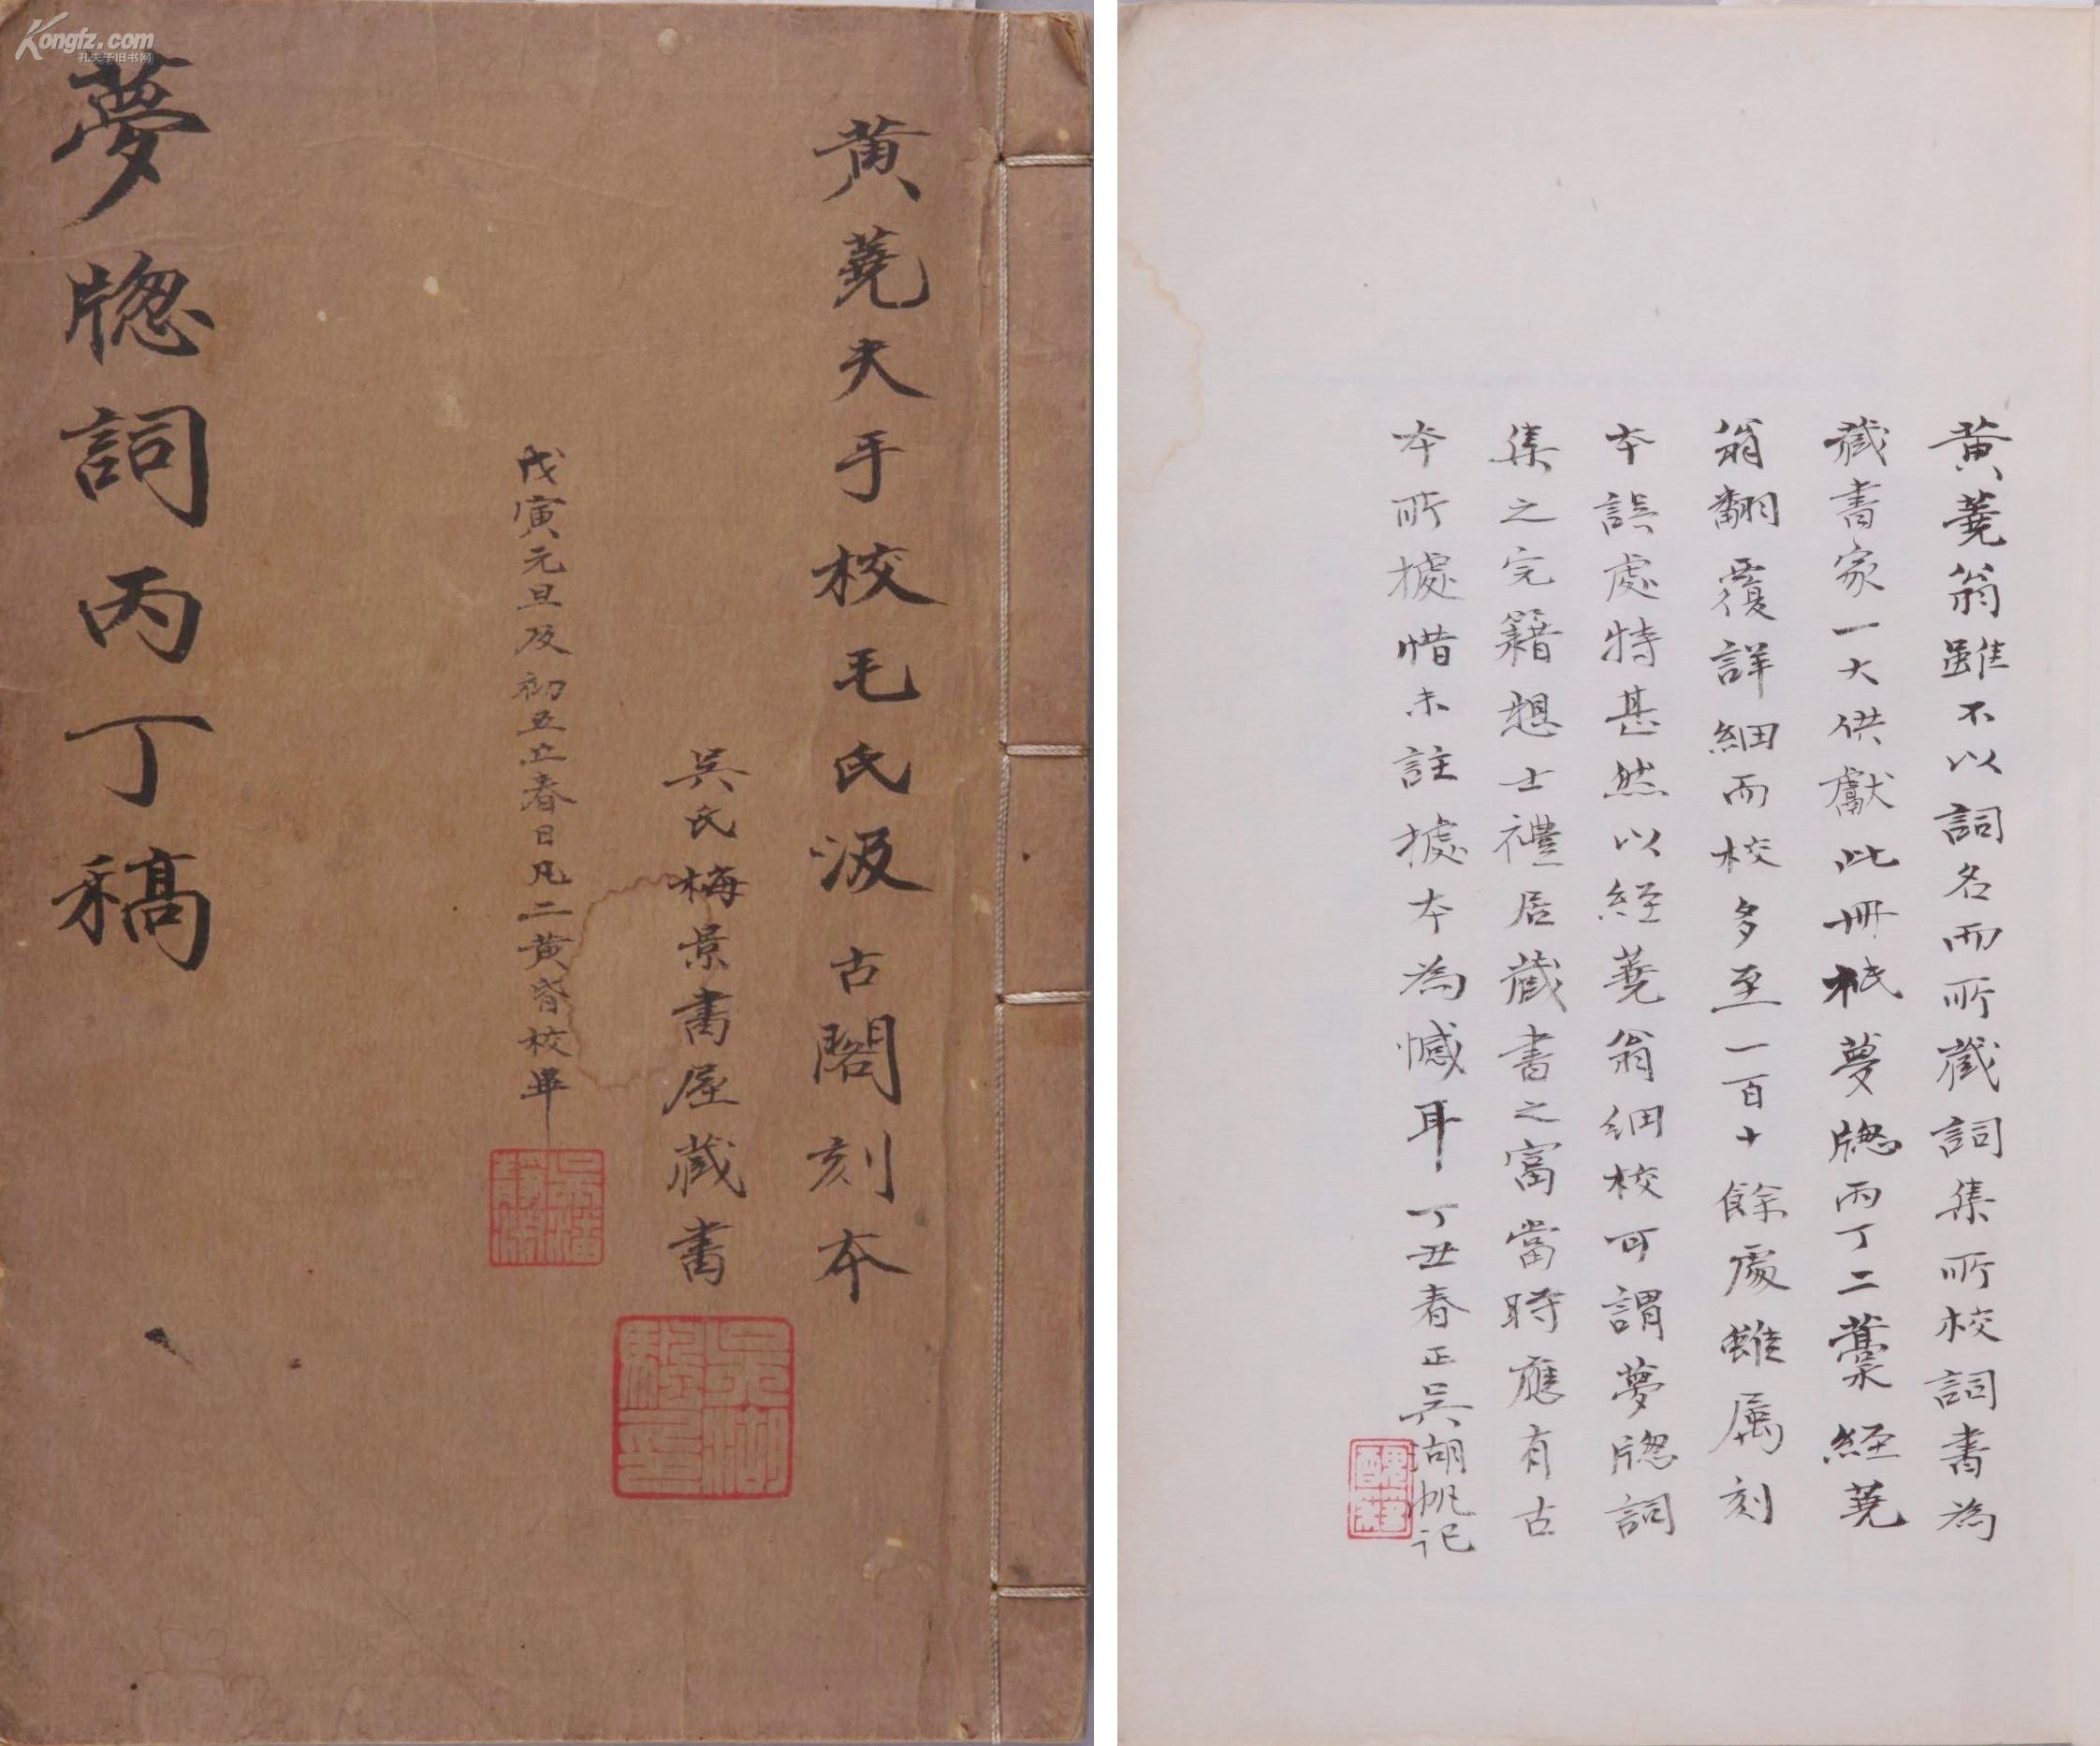 Kongfz.com
孔夫子旧书网
黃蕘夫手校毛氏汲古閣刻本
吳氏梅景書屋藏書
戊寅元旦及初五立春日凡二黃昏校畢
夢牕詞丙丁稿
吳湖
黃蕘翁雖不以詞名而所藏詞集所校詞書為
藏書家一大供獻此冊柢夢牕丙丁二藁經蕘
翁翻覆詳細而校多至一百十餘處雖属刻
本誤處特甚然以經蕘翁細校可謂夢牕詞
集之完籍想士禮居藏書之富當時應有古
本所據惜未註據本為憾耳丁丑春正吳湖帆記
醜簃